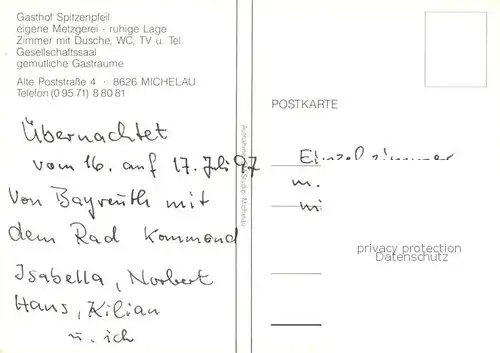 Gasthof Spitzenpfeil
eigene Metzgerei - ruhige Lage
Zimmer mit Dusche, WC, TV u. Tel.
Gesellschaftssaal
gemütliche Gasträume
Alte Poststraße 4 · 8626 MICHELAU
Telefon (0 95 71) 8 80 81
Übernachtet
vom 16. auf 17. Juli 97
von Bayreuth mit
dem Rad kommend
Isabella, Norbert
Hans, Kilian
u. ich
Michelau
POSTKARTE
Einzelzimmer
m.
mi
privacy protection
Datenschutz